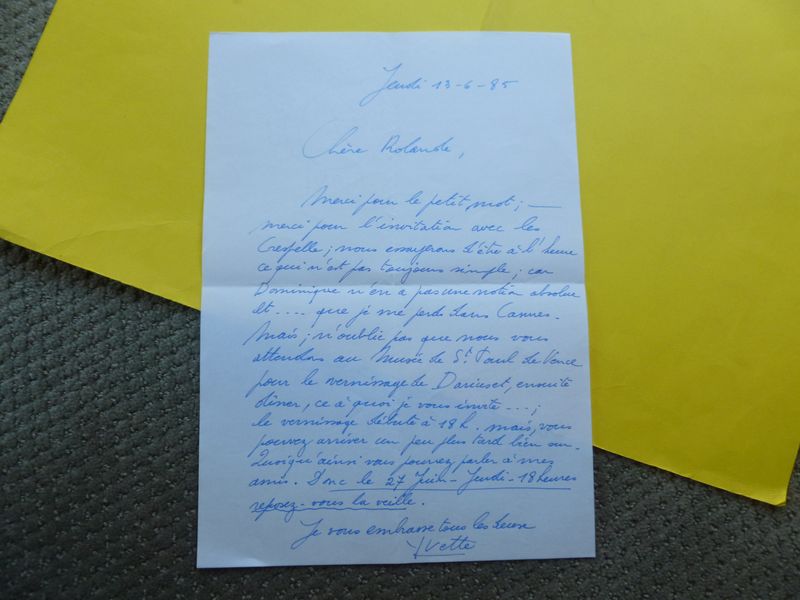 Jeudi 13-6-85
Chère Rolande,
Merci pour le petit mot ; —
merci pour l'invitation avec les
Crespelle ; nous essayerons d'être à l'heure
ce qui n'est pas toujours simple ; car
Dominique n'en a pas une notion absolue
et .... que je me perds dans Cannes.
Mais ; n'oublie pas que nous vous
attendons au Musée de St Paul de Vence
pour le vernissage de ensuite
dîner, ce à quoi je vous invite ... ;
le vernissage débute à 18h. mais, vous
pouvez arriver un peu plus tard bien sûr.
Quoiqu'ainsi vous pourrez parler à mes
amis. Donc le 27 Juin - Jeudi - 18 heures
reposez-vous la veille.
Je vous embrasse tous les deux
Yvette